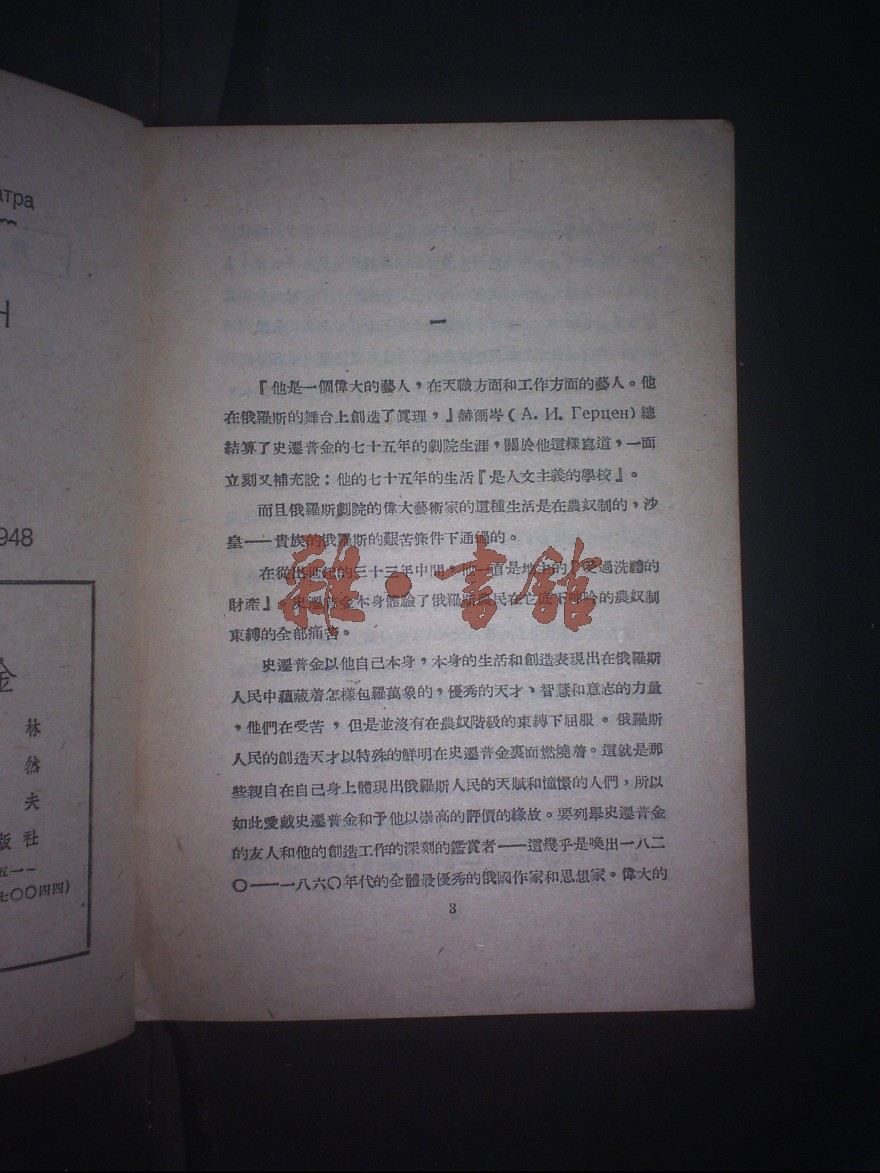 тра
Н
1948
金
林
然
夫
版社
五一一
七〇〇四四)
一
『他是一個偉大的藝人，在天職方面和工作方面的藝人。他
在俄羅斯的舞台上創造了眞理，』赫爾岑（А. И. Герцен）總
結算了史遷普金的七十五年的劇院生涯，關於他這樣寫道，一面
立刻又補充說：他的七十五年的生活『是人文主義的學校』。
而且俄羅斯劇院的偉大藝術家的這種生活是在農奴制的，沙
皇——貴族的俄羅斯的艱苦條件下通過的。
在從出世起的三十三年中間，他一直是地主的『受過洗禮的
財產』。史遷普金本身體驗了俄羅斯農民在它底下呻吟的農奴制
束縛的全部痛苦。
史遷普金以他自己本身，本身的生活和創造表現出在俄羅斯
人民中蘊藏着怎樣包羅萬象的，優秀的天才、智慧和意志的力量
，他們在受苦，但是並沒有在農奴階級的束縛下屈服。俄羅斯
人民的創造天才以特殊的鮮明在史遷普金裏面燃燒着。這就是那
些親自在自己身上體現出俄羅斯人民的天賦和憧憬的人們，所以
如此愛戴史遷普金和予他以崇高的評價的緣故。要列舉史遷普金
的友人和他的創造工作的深刻的鑑賞者——這幾乎是喚出一八二
〇——一八六〇年代的全體最優秀的俄國作家和思想家。偉大的
3
雜·書館